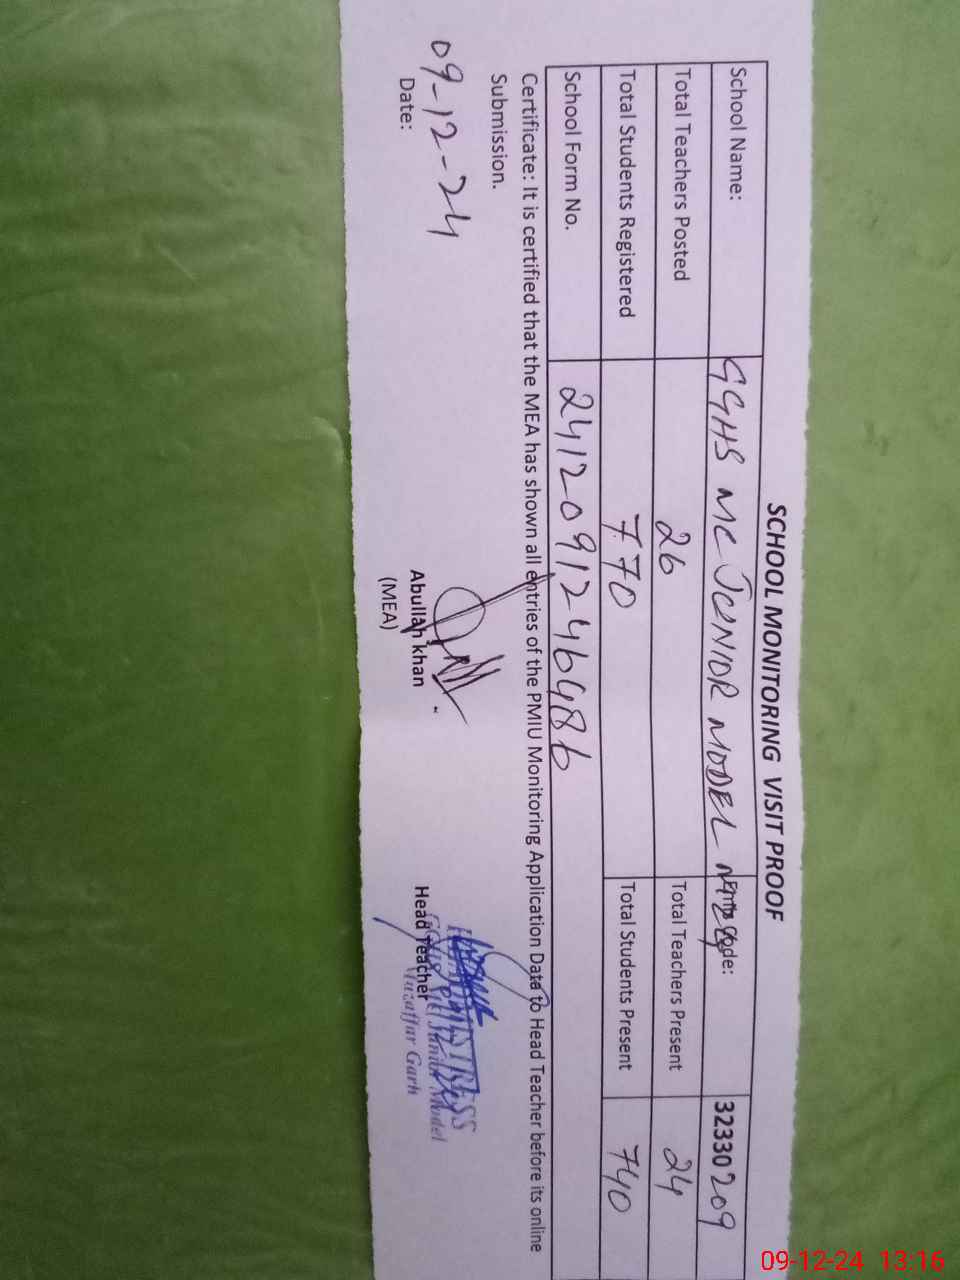 SCHOOL MONITORING VISIT PROOF
School Name: GGHS MC JUNIOR MODEL Code: 32330209
Total Teachers Posted 26 Total Teachers Present 24
Total Students Registered 770 Total Students Present 740
School Form No. 241209124646486
Certificate: It is certified that the MEA has shown all entries of the PMIU Monitoring Application Data to Head Teacher before its online
Submission.
09-12-24
Date:
Abullah khan
(MEA)
Head Teacher
Junior Model
Muzaffar Garh
09-12-24 13:16